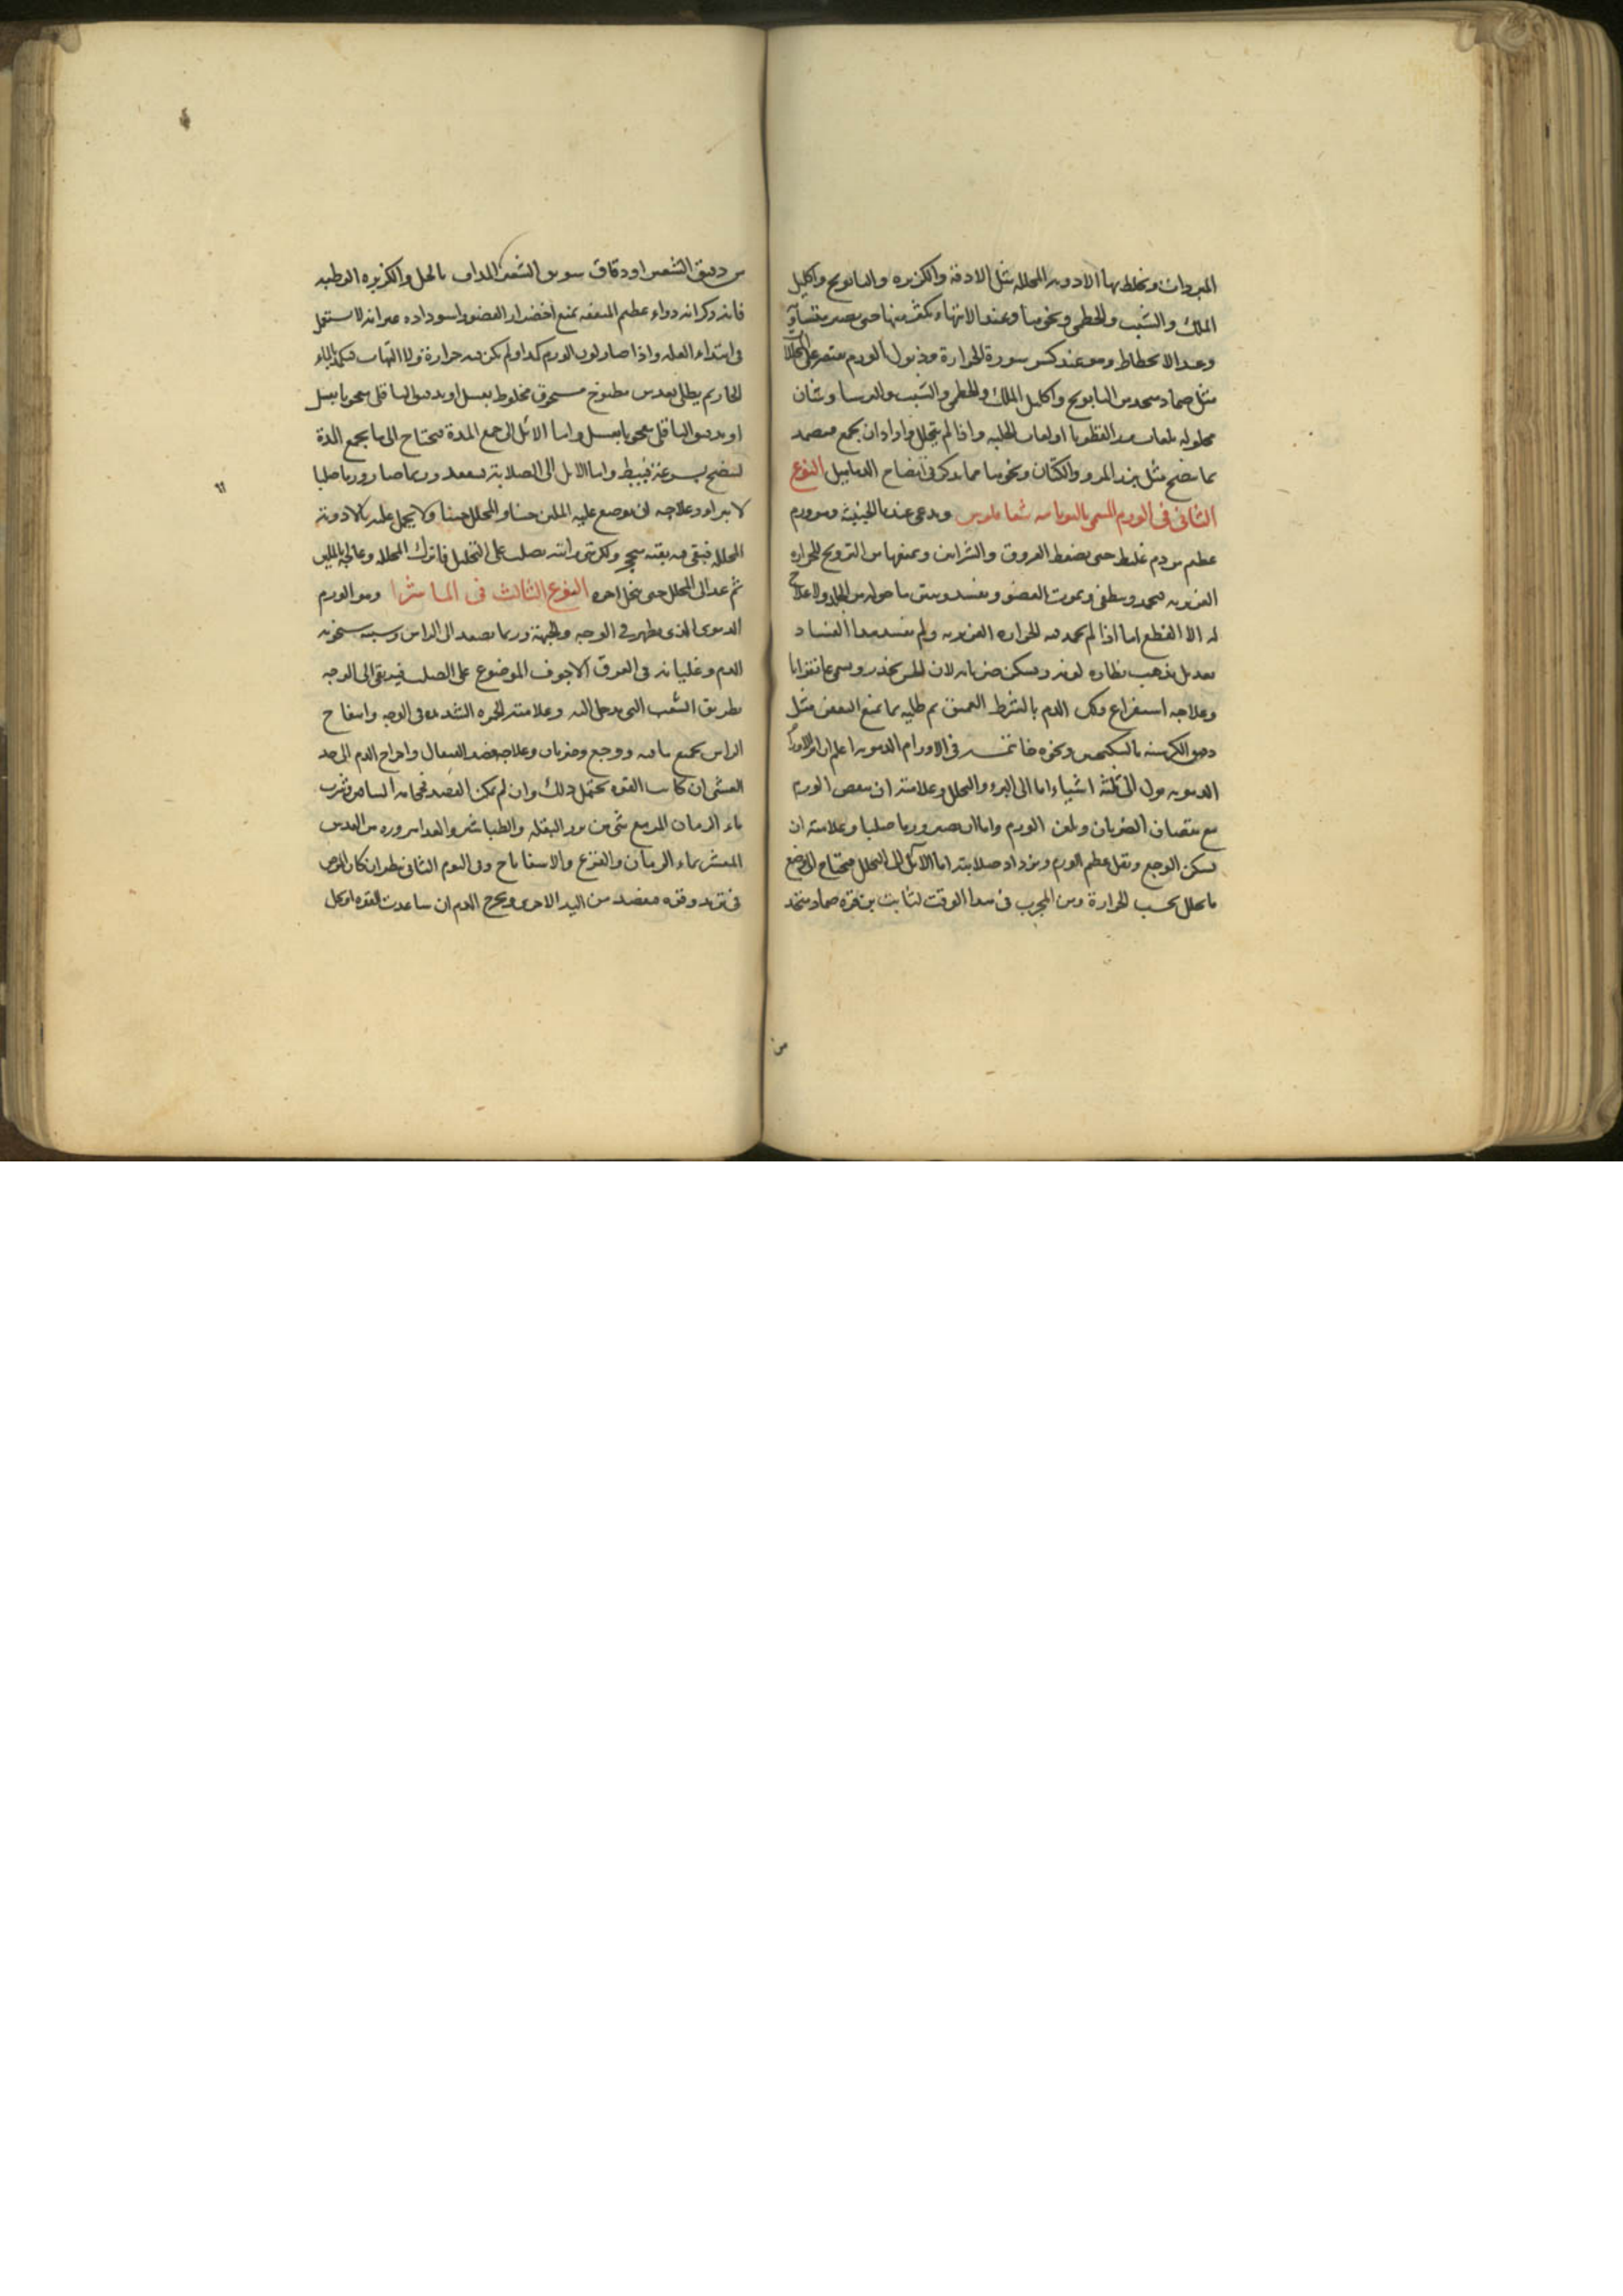 المبردات ويخلط بها الادوية المحللة مثل الادقة والكزبره والبابونج واكليل
الملك والشبت والخطمى ونحوها وعند الانتهاء يكثر منها حتى يصير متساو
وعند الانحطاط وهو عند كسر سورة الحرارة وذبول الورم يقتصر على المحللا
مثل ضماد يتخذ من البابونج واكليل الملك والخطمى والشبت والبرسياوشان
محلوله بلعاب بزر القطونا او لعاب الحلبه واذا لم يتحلل واراد ان يجمع فيضمد
بما ينضج مثل بزر المرو والكتان ونحوها مما يذكر فى انضاج الدماميل النوع
الثانى فى الورم المسمى باليونانيه شقاقلوس ويدعى عندنا الخبيثة وهو ورم
عظيم من دم غليظ حتى يضغط العروق والشرايين ويمنعها من الترويح للحراره
الغريزيه فيخمد وينطفى ويموت العضو ويفسد وينتن ما حوله من الجلد ولا علاج
له الا القطع اما اذا لم يخمد فيه الحراره الغريزيه ولم يفسد هذا الفساد
بعد بل يذهب نظاره لونه ويسكن ضربانه لان الحس يخدر ويسمى غانغرانا
وعلاجه استفراغ ذلك الدم بالشرط العميق ثم طليه بما يمنع العفن مثل
دقيق الكرسنه بالسكنجبين ونحوه خاتمة فى الاورام الدمويه اعلم ان امر الاورام
الدمويه يؤل الى ثلثة اشياء اما الى البرء والتحلل وعلامته ان ينقص الورم
مع نقصان الضربان ويلين الورم واما ان يصير ورما صلبا وعلامته ان
يسكن الوجع ويقل عظم الورم ويزداد صلابته اما الآئل الى التحلل فيحتاج ان يوضع
ما يحلل بحسب الحرارة ومن المجرب فى هذا الوقت لثابت بن قرة ضماد يتخذ
من
من دقيق الشعير او دقاق سويق الشعير المداف بالخل والكزبره الرطبه
فانه ذكر انه دواء عظيم المنفعه يمنع اخضرار العضو واسوداده غير انه لا يستعمل
فى ابتداء العله واذا صار لون الورم كمدا ولم يكن فيه حرارة ولا التهاب فيكمد بالماء
الحار ثم يطلى بعدس مطبوخ مسحوق مخلوط بعسل او بدقيق الباقلى معجونا بعسل
او بدقيق الباقلى معجونا بعسل واما الآئل الى جمع المدة فيحتاج الى ما يجمع المدة
لينضج بسرعة فيبط واما الآئل الى الصلابة فيعقد وربما صار ورما صلبا
لا يبراء وعلاجه ان يوضع عليه الملين حينا والمحلل حينا ولا يحمل عليه بالادوية
المحلله فيبقى منه بقيه يتحجر ولكن متى رايته يصلب على التحليل فاترك المحلله وعالجه بالملين
ثم عد الى المحلل حتى ينحل اخره النوع الثالث فى الماشرا وهو الورم
الدموى الذى يظهر فى الوجه والجبهة وربما يصعد الى الراس وسببه سخونه
الدم وغليانه فى العرق الاجوف الموضوع على الصلب فيرتقى الى الوجه
بطريق الشعب التى يدخل اليه وعلامته الحمره الشديده فى الوجه وانتفاخ
الراس بجميع ما فيه ووجع وضربان وعلاجه فصد القيفال واخراج الدم الى حد
الغشى ان كانت القوه يحتمل ذلك وان لم يكن الفصد فحجامة الساقين وشرب
ماء الرمان المر مع شى من بزر البقله والطباشير والغذا مزوره من العدس
المقشر بماء الرمان والقرع والاسفاناخ وفى اليوم الثانى ينظر ان كان المرض
فى تزيد وقوه فيفصد من اليد الاخرى ويخرج الدم ان ساعدت القوه او كل